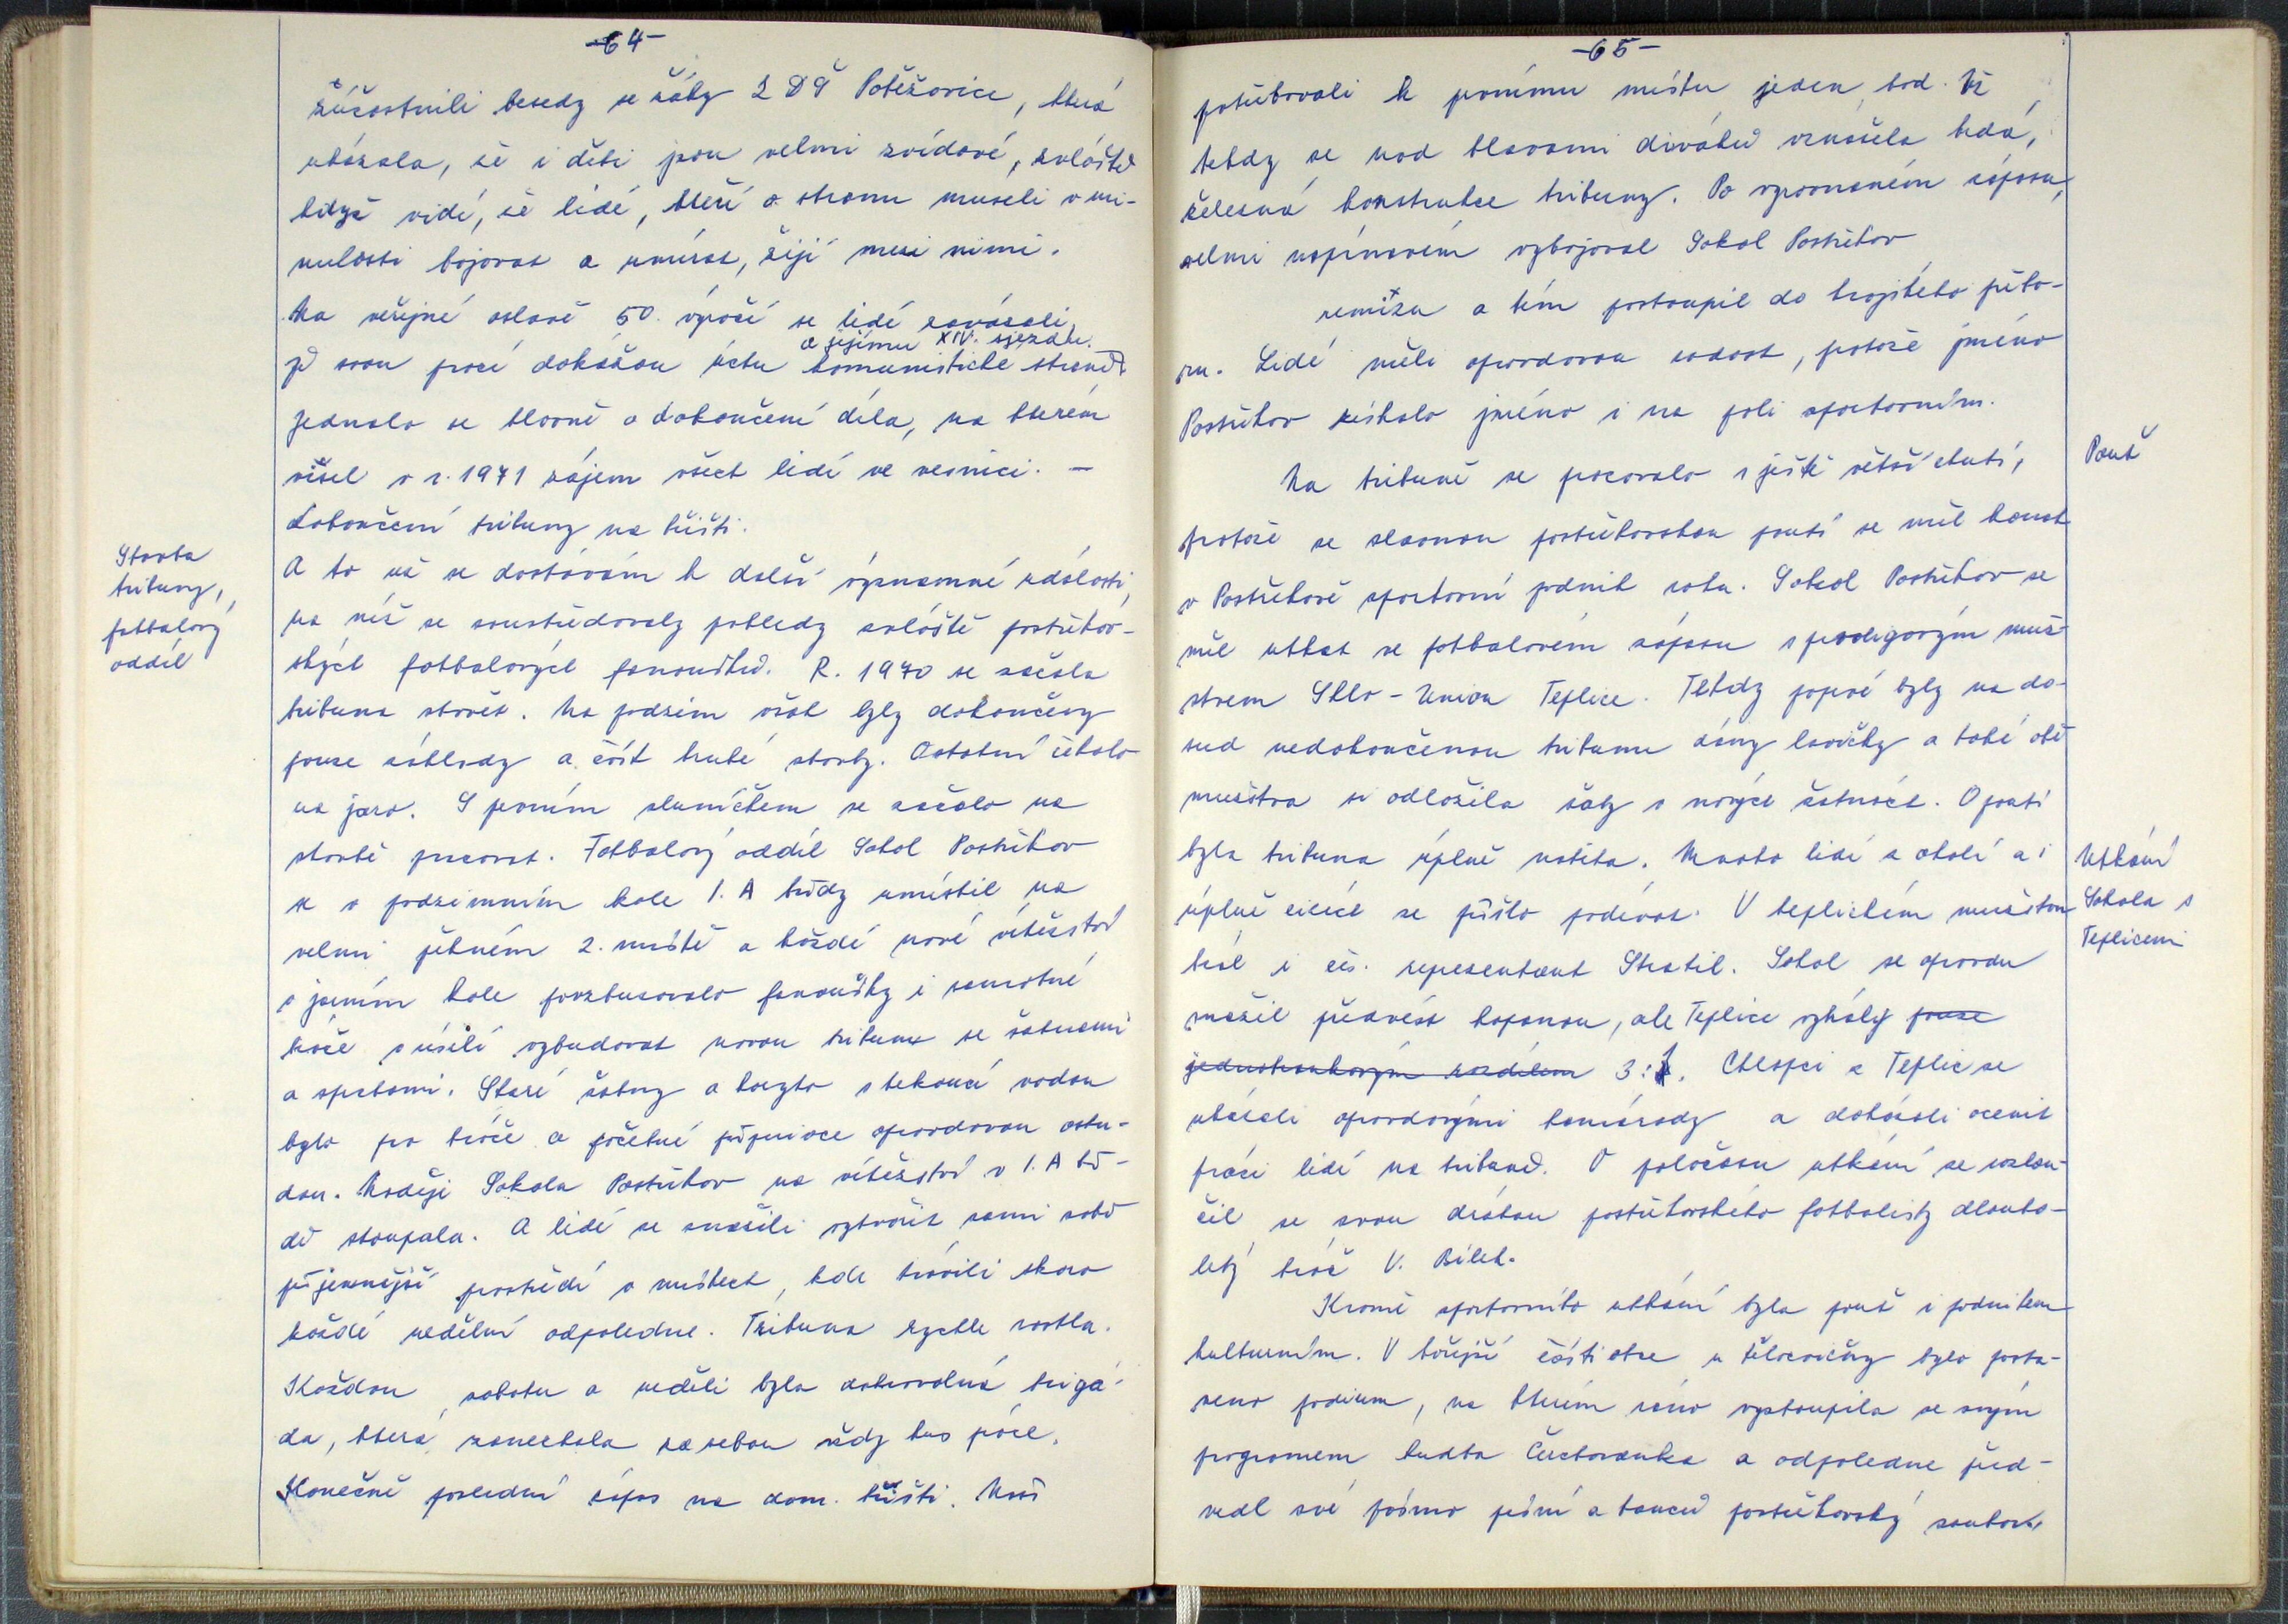 -64-
zúčastnili besedy se žáky ZDŠ Poběžovice, která
ukázala, že i děti jsou velmi zvídavé, zvláště
když vidí, že lidé, kteří o stranu museli v mi-
nulosti bojovat a umírat, žijí mezi nimi.
Na veřejné oslavě 50. výročí se lidé zavázali,
a jejímu XIV. sjezdu.
že svou prací dokážou úctu komunistické straně
Jednalo se hlavně o dokončení díla, na kterém
visel v r. 1971 zájem všech lidí ve vesnici. -
Dokončení tribuny na hřišti.
Stavba
tribuny,
fotbalový
oddíl
A to už se dostávám k další významné události,
na níž se soustřeďovaly pohledy zvláště postřekov-
ských fotbalových fanoušků. R. 1970 se začala
tribuna stavět. Na podzim však byly dokončeny
pouze základy a část hrubé stavby. Ostatní čekalo
na jaro. S prvním sluníčkem se začalo na
stavbě pracovat. Fotbalový oddíl Sokol Postřekov
se v podzimním kole I. A třídy umístil na
velmi pěkném 2. místě a každé nové vítězství
v jarním kole povzbuzovalo fanoušky i samotné
hráče v úsilí vybudovat novou tribunu se šatnami
a sprchami. Staré šatny a koryto s tekoucí vodou
bylo pro hráče a početné příznivce opravdovou ostu-
dou. Naděje Sokola Postřekov na vítězství v I. A tří-
dě stoupala. A lidé se snažili vytvořit sami sobě
příjemnější prostředí v místech, kde trávili skoro
každé nedělní odpoledne. Tribuna rychle rostla.
Každou sobotu a neděli byla dobrovolná brigá-
da, která zanechala za sebou vždy kus práce.
Konečně poslední zápas na dom. hřišti. Naši
-65-
potřebovali k prvnímu místu jeden bod. Již
tehdy se nad hlavami diváků vznášela hrdá,
železná konstrukce tribuny. Po vyrovnaném zápasu,
velmi napínavém vybojoval Sokol Postřekov
remízu a tím postoupil do krajského přebo-
ru. Lidé měli opravdovou radost, protože jméno
Postřekov získalo jméno i na poli sportovním.
Pouť
Na tribuně se pracovalo s ještě větší chutí,
protože se slavnou postřekovskou poutí se měl konat
v Postřekově sportovní podnik roku. Sokol Postřekov se
měl utkat ve fotbalovém zápasu s prvoligovým muž-
stvem Sklo-Union Teplice. Tehdy poprvé byly na do-
sud nedokončenou tribunu dány lavičky a také obě
mužstva si odložila šaty v nových šatnách. O pouti
byla tribuna úplně nabita. Mnoho lidí z okolí a i
Utkání
Sokola s
Teplicemi
úplně cizích se přišlo podívat. V teplickém mužstvu
hrál i čs. reprezentant Stratil. Sokol se opravdu
snažil předvést kopanou, ale Teplice vyhrály pouze
jednobrankovým rozdílem 3:1. Chlapci z Teplic se
ukázali opravdovými kamarády a dokázali ocenit
práci lidí na tribuně. O poločasu utkání se rozlou-
čil se svou dráhou postřekovského fotbalisty dlouho-
letý hráč V. Bílek.
Kromě sportovního utkání byla pouť i podnikem
kulturním. V hořejší části obce u tělocvičny bylo posta-
veno podium, na kterém ráno vystoupila se svým
programem hudba Čerchovanka a odpoledne před-
vedl své pásmo písní a tanců postřekovský soubor,